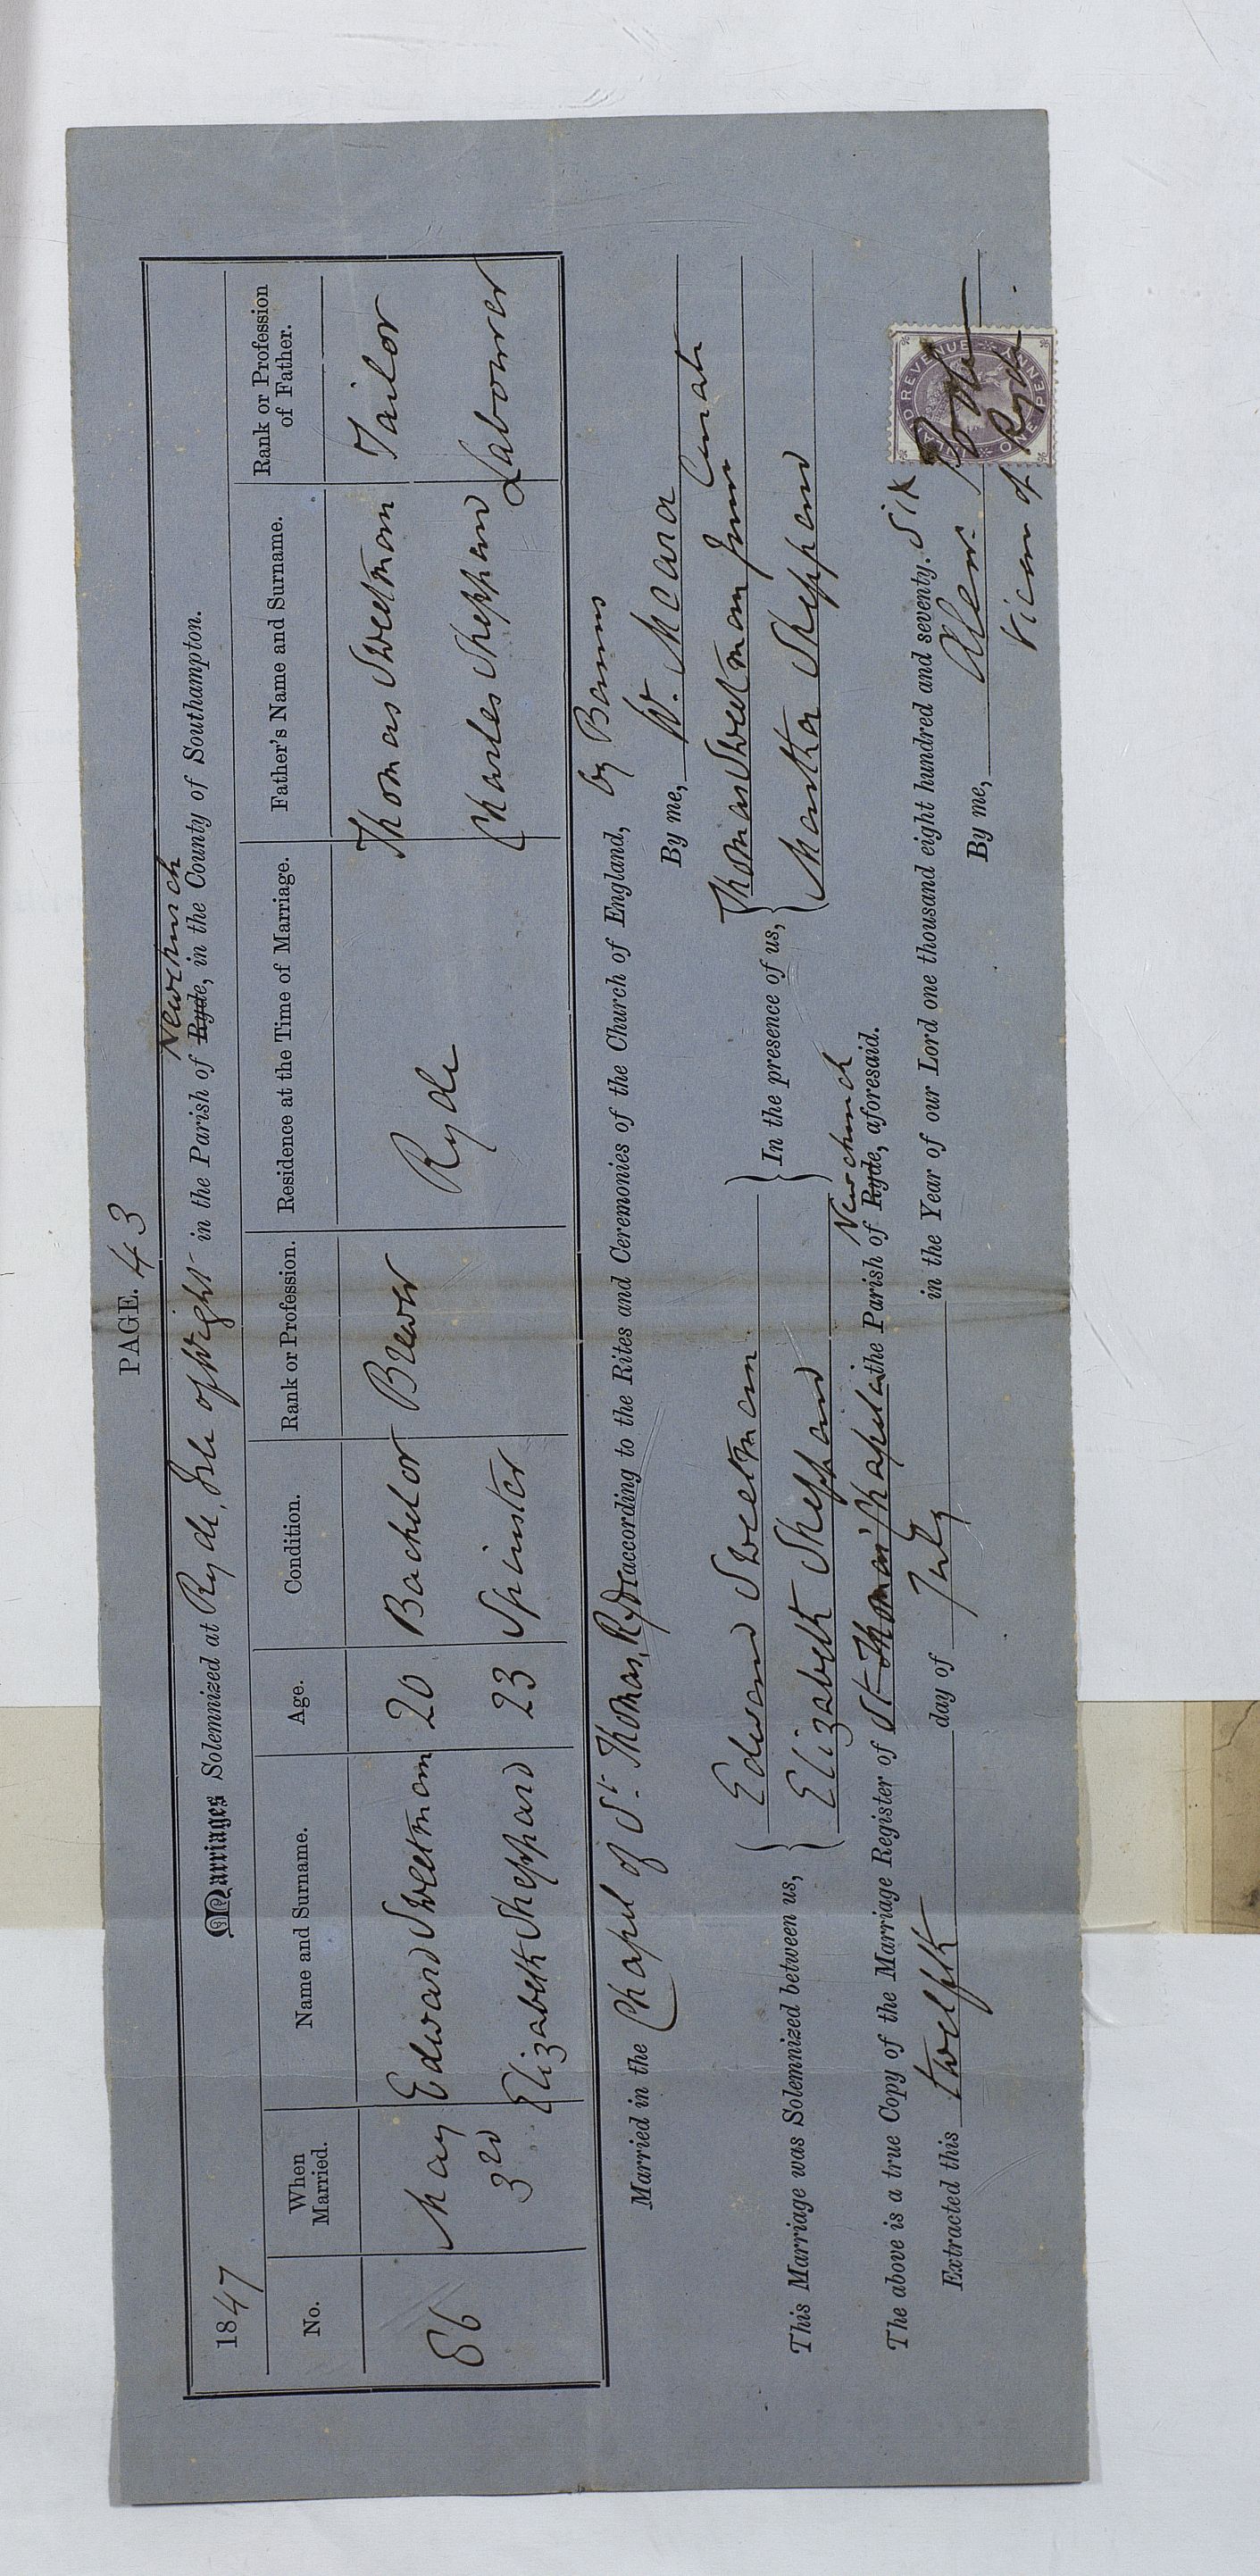 PAGE. 43
1847
Marriages Solemnized at Ryde, Isle of Wight in the Parish of Ryde, Newchurch in the County of Southampton.
No. When Married. Name and Surname. Age. Condition. Rank or Profession. Residence at the Time of Marriage. Father's Name and Surname. Rank or Profession of Father.
86 May 3rd Edward Sweetman 20 Bachelor Brewer Ryde Thomas Sweetman Tailor
Elizabeth Sheppard 23 Spinster Charles Sheppard Labourer
Married in the Chapel of St. Thomas, Ryde according to the Rites and Ceremonies of the Church of England, by Banns
By me, W. Curate
This Marriage was Solemnized between us, { Edward Sweetman Elizabeth Sheppard } In the presence of us, { Thomas Sweetman Junr Martha Sheppard
The above is a true Copy of the Marriage Register of St. Thomas' Chapel in the Parish of Ryde, Newchurch aforesaid.
Extracted this twelfth day of July in the Year of our Lord one thousand eight hundred and seventy. six
By me, Alexr. Poole
Vicar of Ryde.
INLAND REVENUE
ONE PENNY